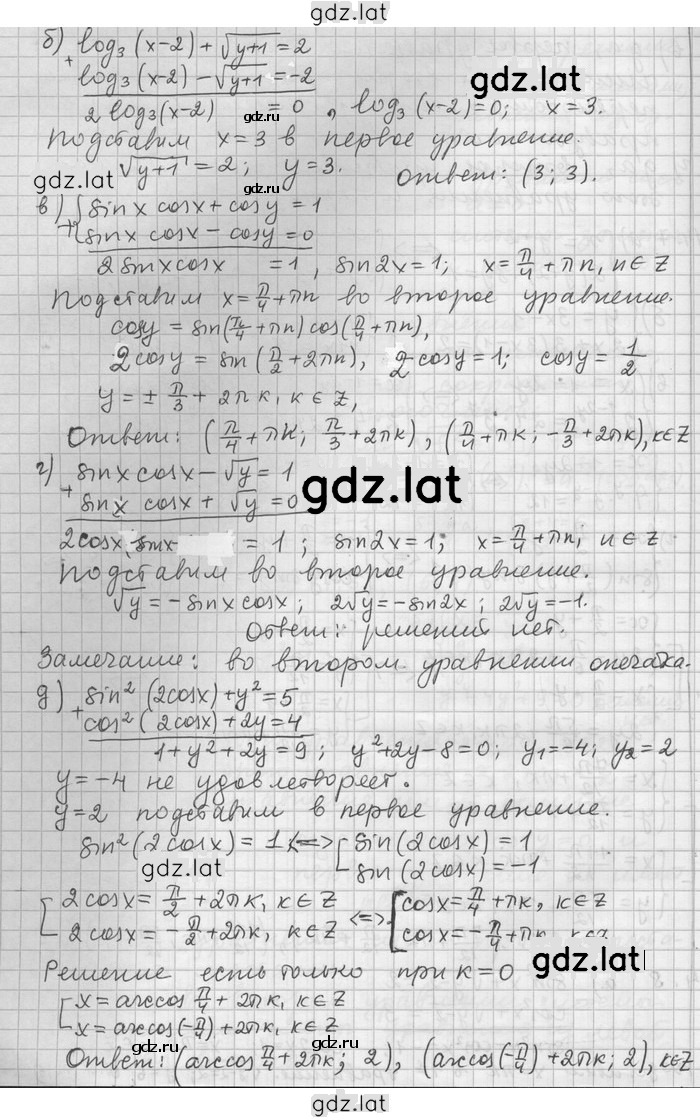 gdz.lat
б) log₃(x-2) + √(y+1) = 2
+
log₃(x-2) - √(y+1) = -2
gdz.lat
2 log₃(x-2) = 0, log₃(x-2)=0; x=3.
gdz.lat
Подставим x=3 в первое уравнение.
√(y+1) = 2; y=3. Ответ: (3; 3).
gdz.lat
в) { sinx cosx + cosy = 1
+
sinx cosx - cosy = 0
2 sinx cosx = 1, sin2x=1; x=π/4+πn, n∈Z
Подставим x=π/4+πn во второе уравнение.
cosy = sin(π/4+πn) cos(π/4+πn),
2cosy = sin(π/2+2πn), 2cosy=1; cosy=1/2
y = ± π/3 + 2πк, к∈Z,
Ответ: (π/4+πк; π/3+2πк), (π/4+πк; -π/3+2πк), к∈Z
г) sinx cosx - √y = 1
+
sinx cosx + √y = 0
gdz.lat
2cosx sinx = 1; sin2x=1; x=π/4+πn, n∈Z
Подставим во второе уравнение.
√y = -sinx cosx; 2√y=-sin2x; 2√y=-1.
Ответ: решений нет.
Замечание: во втором уравнении опечатка.
д) sin²(2cosx)+y²=5
+
cos²(2cosx)+2y=4
1+y²+2y=9; y²+2y-8=0; y₁=-4; y₂=2
y=-4 не удовлетворяет.
y=2 подставим в первое уравнение.
sin²(2cosx)=1 <=> [ sin(2cosx)=1
sin(2cosx)=-1
gdz.lat
[ 2cosx=π/2+2πк, к∈Z <=> [ cosx=π/4+πк, к∈Z
2cosx=-π/2+2πк, к∈Z cosx=-π/4+πк, к∈Z
Решение есть только при к=0
gdz.lat
[ x=arccos π/4+2πк, к∈Z
x=arccos(-π/4)+2πк, к∈Z
gdz.lat
gdz.lat
Ответ: (arccos π/4+2πк; 2), (arccos(-π/4)+2πк; 2), к∈Z
gdz.lat